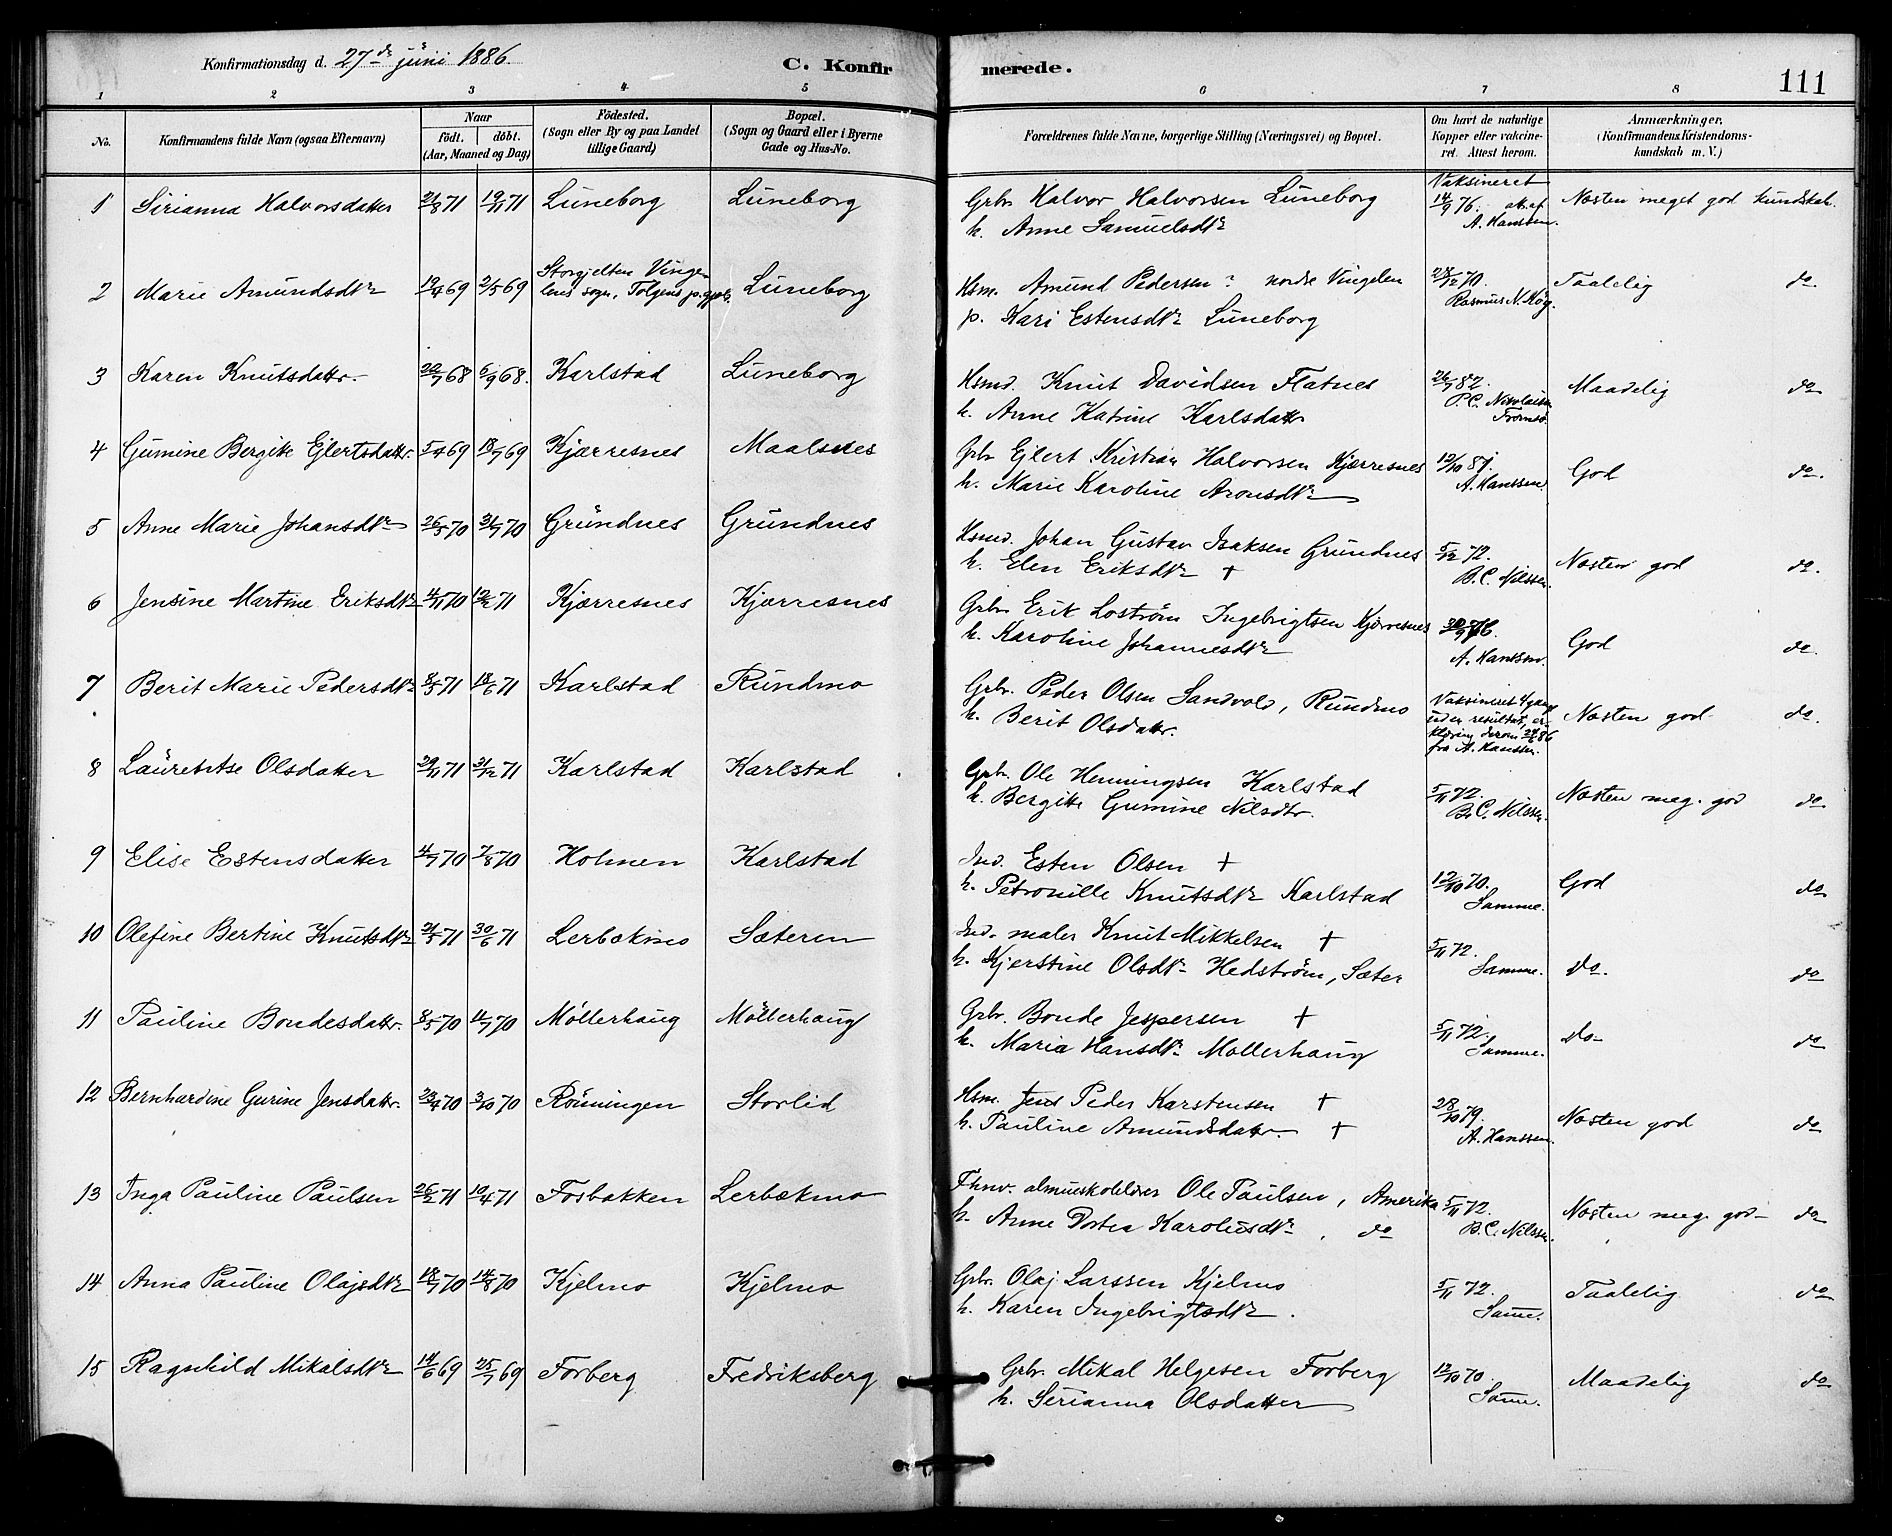 Konfirmationsdag d. 27de juni 1886.
C. Konfirmerede.
111
1 2 3 4 5 6 7 8
No.
Konfirmandens fulde Navn (ogsaa Efternavn)
Naar
födt. döbt.
(Aar, Maaned og Dag)
Födested.
(Sogn eller By og paa Landet
tillige Gaard)
Bopæl.
(Sogn og Gaard eller i Byerne
Gade og Hus-No.
Forældrenes fulde Navne, borgerlige Stilling (Næringsvei) og Bopæl.
Om havt de naturlige
Kopper eller vakcine-
ret. Attest herom.
Anmærkninger,
(Konfirmandens Kristendoms-
kundskab m. V.)
1 Sirianna Halvorsdatter 21/8 71 19/11 71 Luneborg Luneborg Grbr. Halvor Halvorsen Luneborg Vaksineret 14/9 76. at. af Næsten meget god kundskab.
h. Anne Samuelsdtr A. Hanssen.
2 Marie Amundsdtr 19/4 69 2/5 69 Storfjelten Vinge- Luneborg Hsm. Amund Pedersen ? nordre Vingelen 28/12 70. Taalelig do.
lens sogn, Tolgens p. gjeld p. Kari Estensdtr Luneborg Rasmus N. Røg.
3 Karen Knutsdatr. 20/7 68 6/9 68. Karlstad Luneborg Hsmd. Knut Davidsen Flatnes 26/7 82. Maadelig do
h. Anne Katrine Karlsdatr P.C. Nikolaisen Tromsø.
4 Gumine Bergitte Ejlertsdatr. 5/4 69 18/7 69 Kjærresnes Maalsnes Grbr Ejlert Kristian Halvorsen Kjærresnes 12/10 81. God do.
h. Marie Karoline Aronsdtr A. Hanssen.
5 Anne Marie Johansdtr 26/5 70 31/7 70 Grundnes Grundnes Hsmd. Johan Gustav Isaksen Grundnes 5/12 72. Næsten god do.
h. Elen Eriksdtr + B.C. Nilssen.
6 Jensine Martine Eriksdtr 4/11 70 12/2 71 Kjærresnes Kjærresnes Grbr Erik Lostrøm Ingebrigtsen Kjærresnes God do.
h. Karoline Johannesdtr A. Hanssen.
7 Berit Marie Pedersdtr 8/5 71 18/6 71 Karlstad Rundmo Grbr. Peder Olsen Sandvold, Rundmo Vaksineret 4 gange Næsten god do.
h. Berit Olsdatr. uden resultat, er-
klæring derom 24/6 86
fra A. Hanssen.
8 Lauretse Olsdatter 29/11 71 31/12 71 Karlstad Karlstad Grbr. Ole Henningsen Karlstad 5/11 72. Næsten meg. god do
h. Bergitte Gumine Nilsdtr. B.C. Nilssen.
9 Elise Estensdatter 4/7 70 7/8 70 Holmen Karlstad Ind. Esten Olsen + 12/10 70. God do
h. Petronille Knutsdtr Karlstad Samme.
10 Olefine Bertine Knutsdtr 21/5 71 30/6 71 Lerbækmo Sæteren Ind. maler Knut Mikkelsen + 5/11 72. do. do
h. Kjerstine Olsdtr Hedstrøm, Sæter Samme.
11 Pauline Bondesdatr. 8/5 70 11/7 70 Möllerhaug Möllerhaug Grbr. Bonde Jespersen + 5/11 72. do do
h. Maria Hansdtr Møllerhaug Samme.
12 Bernhardine Gurine Jensdatr. 23/4 70 3/10 70 Rönningen Storlid Hsm. Jens Peder Karstensen + 28/10 79. Næsten god do
h. Pauline Amundsdatr. + A. Hanssen.
13 Inga Pauline Paulsen 26/2 71 10/4 71 Fosbakken Lerbækmo Fhnv. almueskolelærer Ole Paulsen, Amerika 5/11 72. Næsten meg. god do
h. Anne Dortea Karolusdtr, do B.C. Nilssen.
14 Anna Pauline Olajsdtr 18/7 70 14/8 70 Kjelmo Kjelmo Grbr. Olaj Larssen Kjelmo 5/11 72. Taalelig do
h. Karen Ingebrigtsdtr. Samme.
15 Ragnhild Mikalsdtr 14/6 69 25/7 69 Forberg Fredriksberg Grbr. Mikal Helgesen Forberg 12/10 70. Maadelig do
h. Serianna Olsdatter Samme.